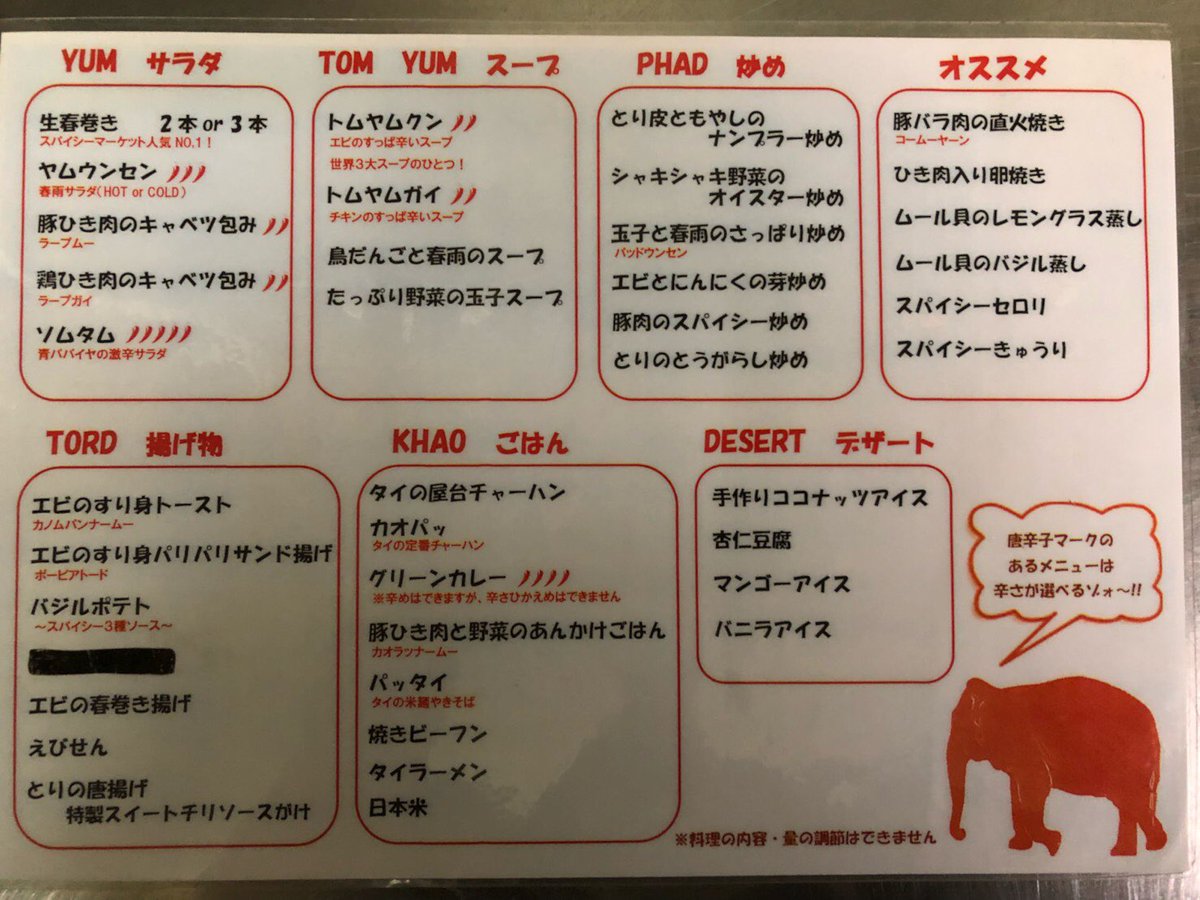 YUM サラダ
生春巻き 2本or3本
スパイシーマーケット人気NO.1！
ヤムウンセン
春雨サラダ(HOT or COLD)
豚ひき肉のキャベツ包み
ラープムー
鶏ひき肉のキャベツ包み
ラープガイ
ソムタム
青パパイヤの激辛サラダ
TOM YUM スープ
トムヤムクン
エビのすっぱ辛いスープ
世界3大スープのひとつ！
トムヤムガイ
チキンのすっぱ辛いスープ
鳥だんごと春雨のスープ
たっぷり野菜の玉子スープ
PHAD 炒め
とり皮ともやしの
ナンプラー炒め
シャキシャキ野菜の
オイスター炒め
玉子と春雨のさっぱり炒め
パッドウンセン
エビとにんにくの芽炒め
豚肉のスパイシー炒め
とりのとうがらし炒め
オススメ
豚バラ肉の直火焼き
コームーヤーン
ひき肉入り卵焼き
ムール貝のレモングラス蒸し
ムール貝のバジル蒸し
スパイシーセロリ
スパイシーきゅうり
TORD 揚げ物
エビのすり身トースト
カノムパンナームー
エビのすり身パリパリサンド揚げ
ポーピアトード
バジルポテト
～スパイシー3種ソース～
エビの春巻き揚げ
えびせん
とりの唐揚げ
特製スイートチリソースがけ
KHAO ごはん
タイの屋台チャーハン
カオパッ
タイの定番チャーハン
グリーンカレー
※辛めはできますが、辛さひかえめはできません
豚ひき肉と野菜のあんかけごはん
カオラッナームー
パッタイ
タイの米麺やきそば
焼きビーフン
タイラーメン
日本米
DESERT デザート
手作りココナッツアイス
杏仁豆腐
マンゴーアイス
バニラアイス
唐辛子マークの
あるメニューは
辛さが選べるゾォ～!!
※料理の内容・量の調節はできません